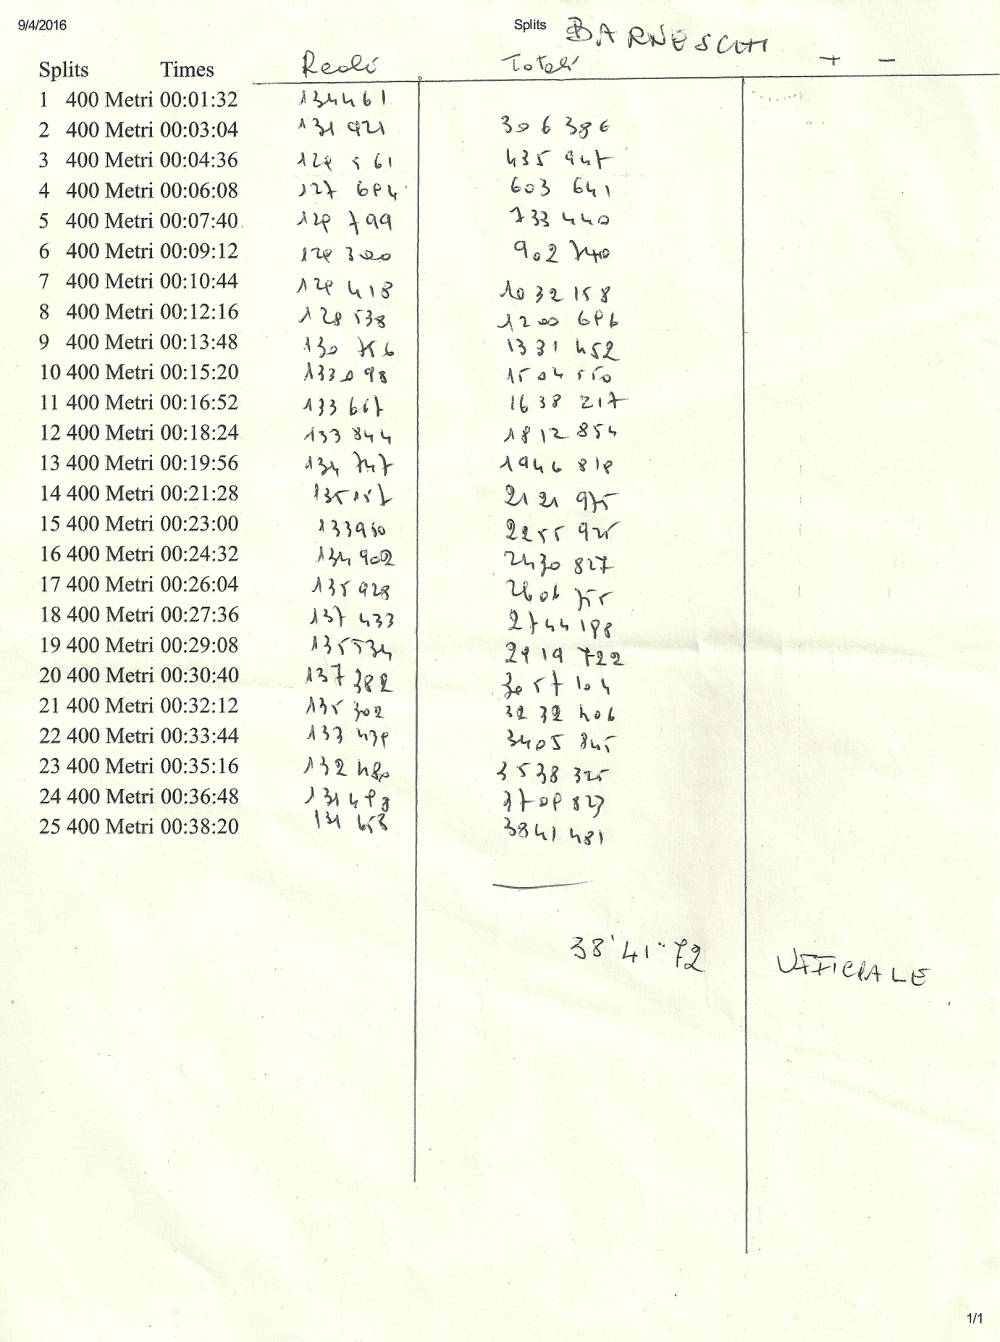 9/4/2016 Splits BARNESCHI
Splits Times Reali Totali + -
1 400 Metri 00:01:32 134461
2 400 Metri 00:03:04 131 921 306 386
3 400 Metri 00:04:36 129 561 435 947
4 400 Metri 00:06:08 127 694 603 641
5 400 Metri 00:07:40 129 799 733 440
6 400 Metri 00:09:12 129 300 902 740
7 400 Metri 00:10:44 129 418 1032 158
8 400 Metri 00:12:16 128 538 1200 696
9 400 Metri 00:13:48 130 756 1331 452
10 400 Metri 00:15:20 133098 1504 550
11 400 Metri 00:16:52 133 667 1638 217
12 400 Metri 00:18:24 133 844 1812 854
13 400 Metri 00:19:56 134 747 1946 818
14 400 Metri 00:21:28 135157 2121 975
15 400 Metri 00:23:00 133950 2255 925
16 400 Metri 00:24:32 134 902 2430 827
17 400 Metri 00:26:04 135 928 2606 755
18 400 Metri 00:27:36 137 433 2744 198
19 400 Metri 00:29:08 135534 2919 722
20 400 Metri 00:30:40 137 382 3057 104
21 400 Metri 00:32:12 135 302 3232 406
22 400 Metri 00:33:44 133 439 3405 845
23 400 Metri 00:35:16 132 480 3538 325
24 400 Metri 00:36:48 131 498 3709 823
25 400 Metri 00:38:20 131 658 3841 481
38'41"72 UFFICIALE
1/1